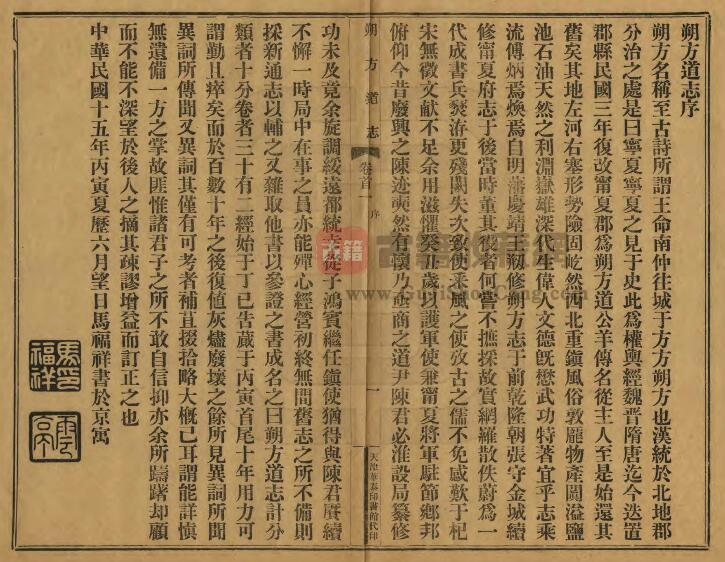 朔方道志序
朔方名稱至古詩所謂王命南仲往城于方朔方也漢統於北地郡
分治之處是曰寧夏寧夏之見于史此為權輿經魏晉隋唐迄今迭置
郡縣民國三年復改甯夏郡為朔方道公羊傳名從主人至是始還其
舊矣其地左河右塞形勢險固屹然西北重鎮風俗敦龐物產闐溢鹽
池石油天然之利淵嶽雄深代生偉人文德旣懋武功特著宜乎志乘
流傳炳焉煥焉自明藩慶靖王㓞修朔方志于前乾隆朝張守金城續
修甯夏府志于後當時董其役者何嘗不摭採故實網羅散佚蔚為一
代成書兵燹洊更殘闕失次致使采風之使攷古之儒不免感歎于杞
宋無徵文獻不足余用滋懼癸丑歲以護軍使兼甯夏將軍駐節鄉邦
俯仰今昔廢興之陳迹奭然有懷乃亟商之道尹陳君必淮設局纂修
朔方道志
卷首
序
一
天津華泰印書館代印
功未及竟余旋調綏遠都統去從子鴻賓繼任鎮使猶得與陳君賡續
不懈一時局中在事之員亦能殫心經營初終無間舊志之所不備則
採新通志以輔之又雜取他書以參證之書成名之曰朔方道志計分
類者十分卷者三十有二經始于丁巳告蕆于丙寅首尾十年用力可
謂勤且瘁矣而於百數十年之後復值灰燼廢壞之餘所見異詞所聞
異詞所傳聞又異詞其僅有可考者補苴掇拾略大槪已耳謂能詳愼
無遺備一方之掌故匪惟諸君子之所不敢自信抑亦余所躊躇却顧
而不能不深望於後人之摘其疎謬增益而訂正之也
中華民國十五年丙寅夏歷六月望日馬福祥書於京寓
馬福祥印
雲亭
古籍